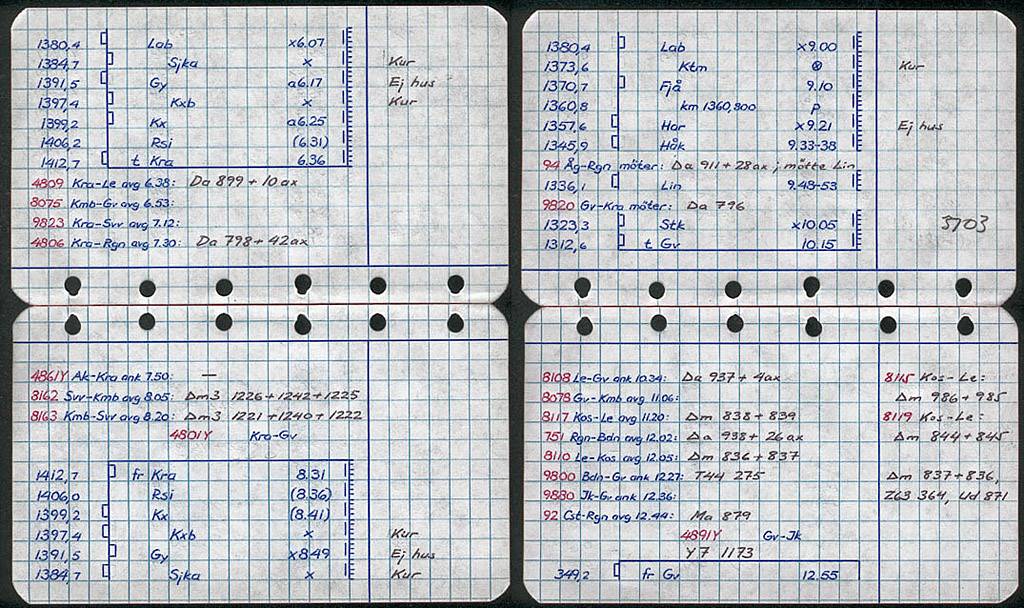 1380,4 Lab x6.07
1384,7 Sjka x Kur
1391,5 Gy a6.17 Ej hus
1397,4 Kxb x Kur
1399,2 Kx a6.25
1406,2 Rsi (6.31)
1412,7 t Kra 6.36
4809 Kra-Le avg 6.38: Da 899 + 10 ax
8075 Kmb-Gv avg 6.53:
9823 Kra-Svv avg 7.12:
4806 Kra-Rgn avg 7.30: Da 798 + 42 ax
4861Y Ak-Kra ank 7.50: —
8162 Svv-Kmb avg 8.05: Dm3 1226+1242+1225
8163 Kmb-Svv avg 8.20: Dm3 1221+1240+1222
4801Y Kra-Gv
1412,7 fr Kra 8.31
1406,0 Rsi (8.36)
1399,2 Kx (8.41)
1397,4 Kxb x Kur
1391,5 Gy x8.49 Ej hus
1384,7 Sjka x Kur
1380,4 Lab x9.00
1373,6 Ktm ⊗ Kur
1370,7 Fjå 9.10
1360,8 km 1360,800 p
1357,6 Har x9.21 Ej hus
1345,9 Håk 9.33-38
94 Åg-Rgn möter: Da 911 + 28 ax ; mötte Lin
1336,1 Lin 9.48-53
9820 Gv-Kra möter: Da 796
1323,3 Stk x10.05 3703
1312,6 t Gv 10.15
8108 Le-Gv ank 10.34: Da 937 + 4 ax 8115 Kos-Le:
8078 Gv-Kmb avg 11.06: Dm 986 + 985
8117 Kos-Le avg 11.20: Dm 838 + 839 8119 Kos-Le:
751 Rgn-Bdn avg 12.02: Da 938 + 26 ax Dm 844 + 845
8110 Le-Kos avg 12.05: Dm 836 + 837
9800 Bdn-Gv ank 12.27: T44 275 Dm 837 + 836,
9830 Jk-Gv ank 12.36: Z63 364, Ud 871
92 Cst-Rgn avg 12.44: Ma 879
4891Y Gv-Jk
Y7 1173
349,2 fr Gv 12.55